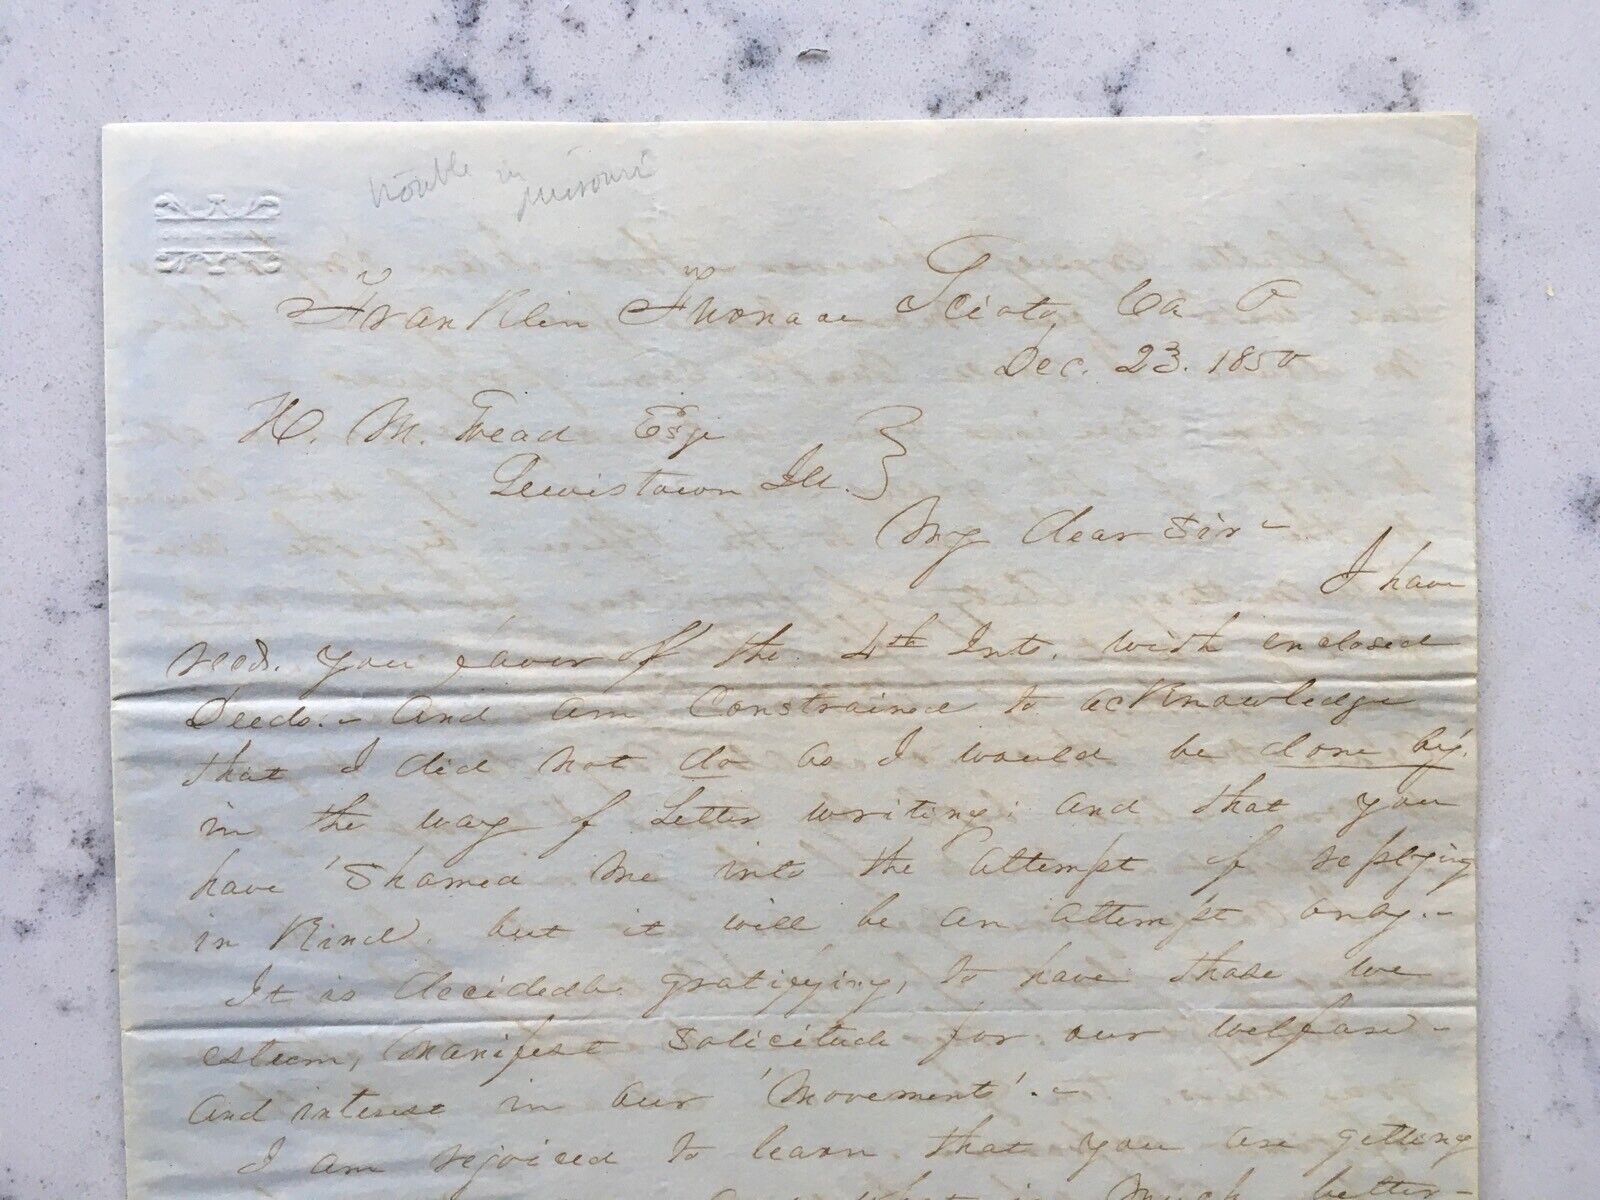 trouble in
missouri
Franklin Furnace Scioto Co O
Dec. 23. 1850
H. M. Wead Esqr
Lewistown Ill.
My dear Sir –
I have
recd. your favor of the 4th Inst. with enclosed
Deeds. – and am Constrained to acknowledge
that I did not do as I would be done by.
in the way of Letter writing; and that you
have 'shamed me into the attempt of replying
in Kind. but it will be an attempt only. –
It is decidedly gratifying, to have those we
esteem, manifest solicitude for our welfare –
and interest in our 'movements'. –
I am rejoiced to learn that you are getting
what is much better –